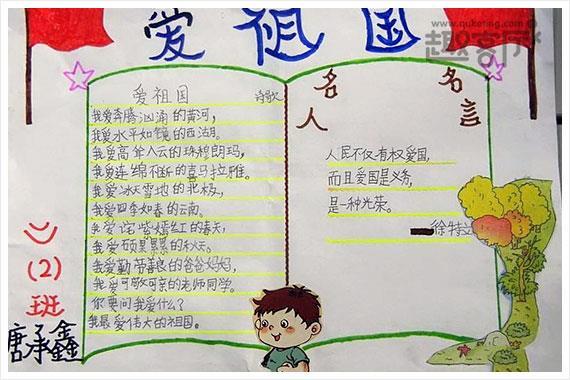 www.quketing.com
爱祖国
爱祖国 诗歌
我爱奔腾汹涌的黄河,
我爱水平如镜的西湖,
我爱高耸入云的珠穆朗玛,
我爱连绵不断的喜马拉雅。
我爱冰天雪地的北极,
我爱四季如春的云南。
我爱诧紫嫣红的春天,
我爱硕果累累的秋天。
我爱勤劳善良的爸爸妈妈,
我爱可敬可亲的老师同学。
你要问我爱什么?
我最爱伟大的祖国。
名人名言
人民不仅有权爱国,
而且爱国是义务,
是一种光荣。
——徐特立
(2)
班
唐承鑫